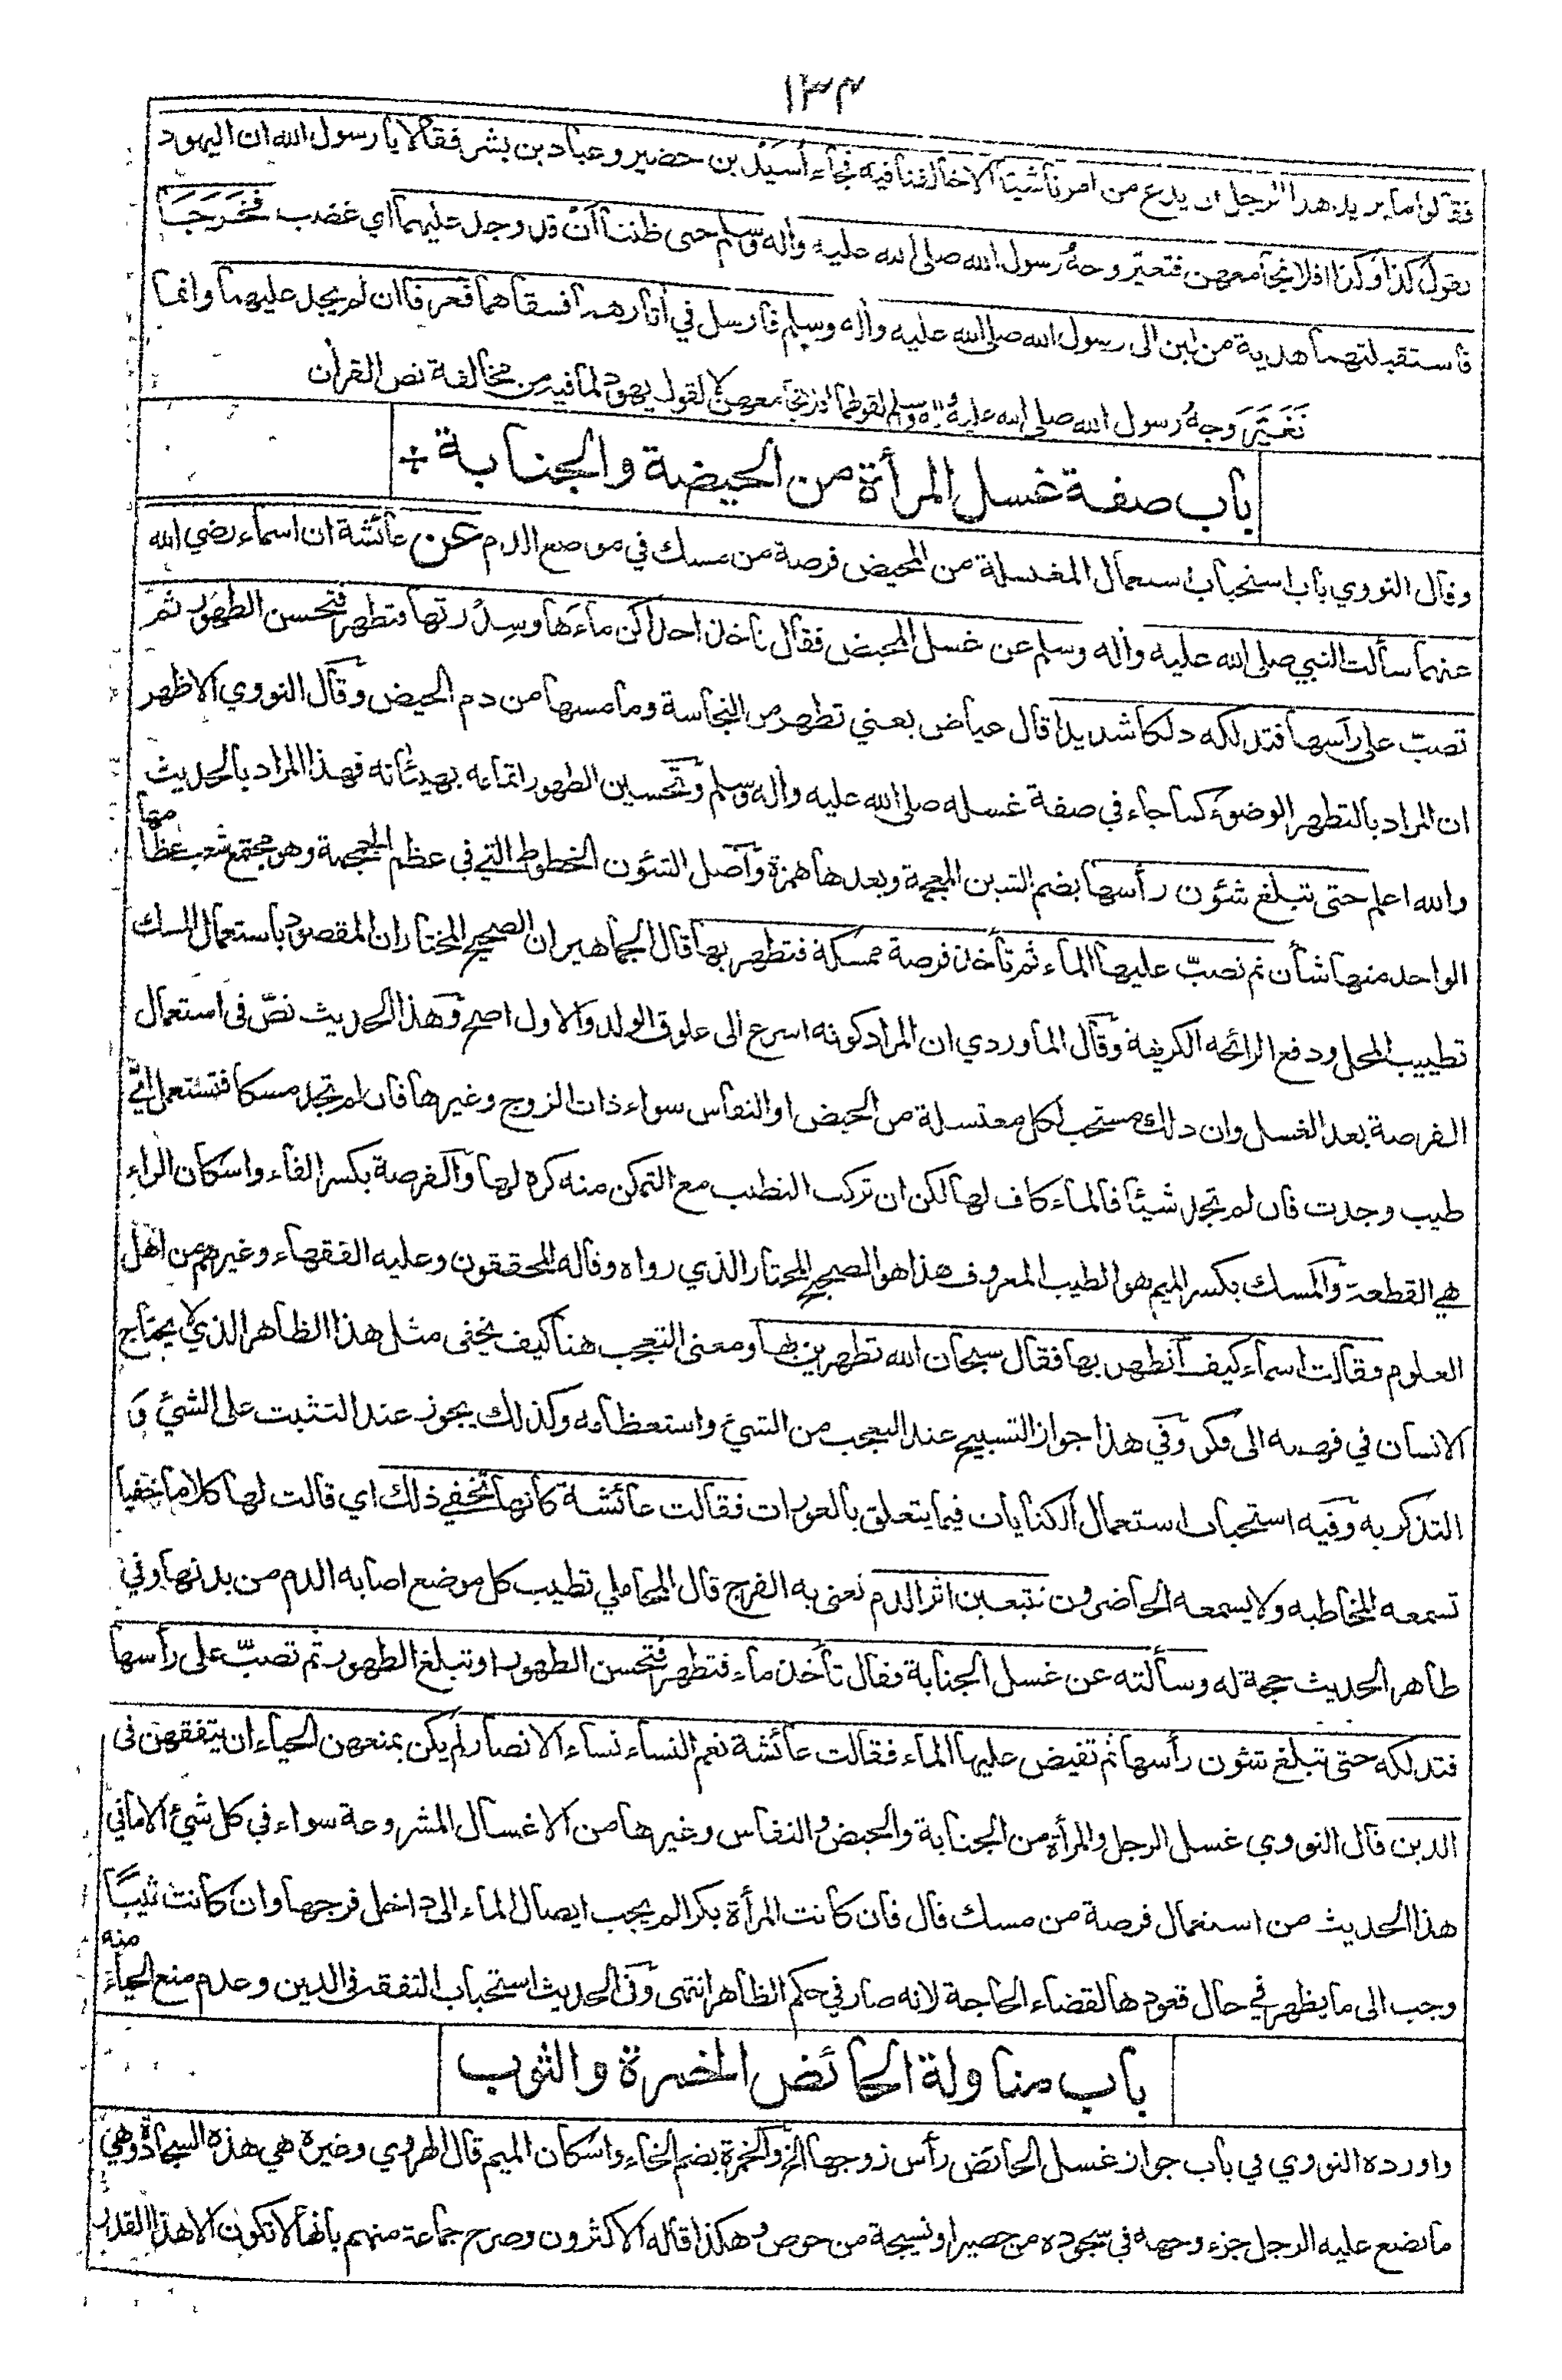 ١٣٤
فقالوا ما يريد هذا الرجل ان يدع من امرنا شيئا الا خالفنا فيه فجاء أُسَيْدُ بن حضير وعباد بن بشر فقالا يا رسول الله ان اليهود
تقول كذا وكذا افلا نجامعهن فتغيّر وجهُ رسول الله صلى الله عليه وأله وسلم حتى ظننا أنْ قد وجد عليهما اي غضب فَخَرَجَا
فاستقبلتهما هدية من لبن الى رسول الله صلى الله عليه وأله وسلم فارسل في أثارهما فسقاهما فعرفا ان لم يجد عليهما وانما
تَغَيَّرَ وجهُ رسول الله صلى الله عليه وأله وسلم لقولهما افلا نجامعهن لا لقول يهود لما فيه من مخالفة نص القرأن
باب صفة غسل المرأة من الحيضة والجنابة ÷
وقال النووي باب استحباب استعمال المغتسلة من المحيض فرصة من مسك في موضع الدم عن عائشة ان اسماء رضي الله
عنهما سألت النبي صلى الله عليه وأله وسلم عن غسل المحيض فقال تاخذ احداكن ماءَها وسِدْرتها فتطهر فتحسن الطهور ثمّ
تصبّ على رأسها فتدلكه دلكا شديدا قال عياض يعني تطهر من النجاسة وما مسها من دم الحيض وقال النووي الاظهر
ان المراد بالتطهر الوضوء كما جاء في صفة غسله صلى الله عليه وأله وسلم وتحسين الطهور اتمامه بهيئاته فهذا المراد بالحديث
والله اعلم حتى تبلغ شئون رأسها بضم الشين المعجمة وبعدها همزة وأصل الشئون الخطوط التي في عظم الجمجمة وهو مجتمع شعب عظامها
الواحد منها شأن ثم تصبّ عليها الماء ثم تأخذ فرصة ممسكة فتطهر بها قال الجماهير ان الصحيح المختار ان المقصود باستعمال المسك
تطييب المحل ودفع الرائحه الكريهة وقال الماوردي ان المراد كونه اسرع الى علوق الولد والاول اصح وهذا الحديث نصّ في استعمال
الفرصة بعد الغسل وان ذلك مستحب لكل مغتسلة من الحيض او النفاس سواء ذات الزوج وغيرها فان لم تجد مسكا فتستعمل ايّ
طيب وجدت فان لم تجد شيئًا فالماء كاف لها لكن ان تركت التطيب مع التمكن منه كره لها والفرصة بكسر الفاء واسكان الراء
هي القطعة والمسك بكسر الميم هو الطيب المعروف هذا هو الصحيح المختار الذي رواه وقاله المحققون وعليه الفقهاء وغيرهم من اهل
العلوم فقالت اسماء كيف أتطهر بها فقال سبحان الله تطهرين بها ومعنى التعجب هنا كيف يخفى مثل هذا الظاهر الذي لا يحتاج
الانسان في فهمه الى فكر وفي هذا جواز التسبيح عند التعجب من الشيئ واستعظامه وكذلك يجوز عند التثبت على الشيئ وَ
التذكر به وفيه استحباب استعمال الكنايات فيما يتعلق بالعورات فقالت عائشة كأنها تخفي ذلك اي قالت لها كلاما خفيا
تسمعه المخاطبه ولا يسمعه الحاضرون تتبعين اثر الدم تعنى به الفرج قال المحاملي تطيب كل موضع اصابه الدم من بدنها وفي
ظاهر الحديث حجة له وسألته عن غسل الجنابة فقال تأخذ ماء فتطهر فتحسن الطهور او تبلغ الطهور ثم تصبّ على رأسها
فتدلكه حتى تبلغ شئون رأسها ثم تفيض عليها الماء فقالت عائشة نعم النساء نساء الانصار لم يكن يمنعهن الحياء ان يتفقهن في
الدين قال النووي غسل الرجل والمرأة من الجنابة والحيض والنفاس وغيرها من الاغسال المشروعة سواء في كل شيئ الا ما في
هذا الحديث من استعمال فرصة من مسك قال فان كانت المرأة بكرا لم يجب ايصال الماء الى داخل فرجها وان كانت ثيبًا
وجب الى ما يظهر في حال قعودها لقضاء الحاجة لانه صار في حكم الظاهر انتهى وفي الحديث استحباب التفقه في الدين وعدم منع الحياء منه
باب مناولة الحائض الخمرة والثوب
واورده النووي في باب جواز غسل الحائض رأس زوجها الخ والخمرة بضم الخاء واسكان الميم قال الهروي وغيره هي هذه السجادة وهي
ما يضع عليه الرجل جزء وجهه في سجوده من حصير او نسيجة من خوص وهكذا قاله الاكثرون وصرح جماعة منهم بانها لا تكون الا هذا القدر